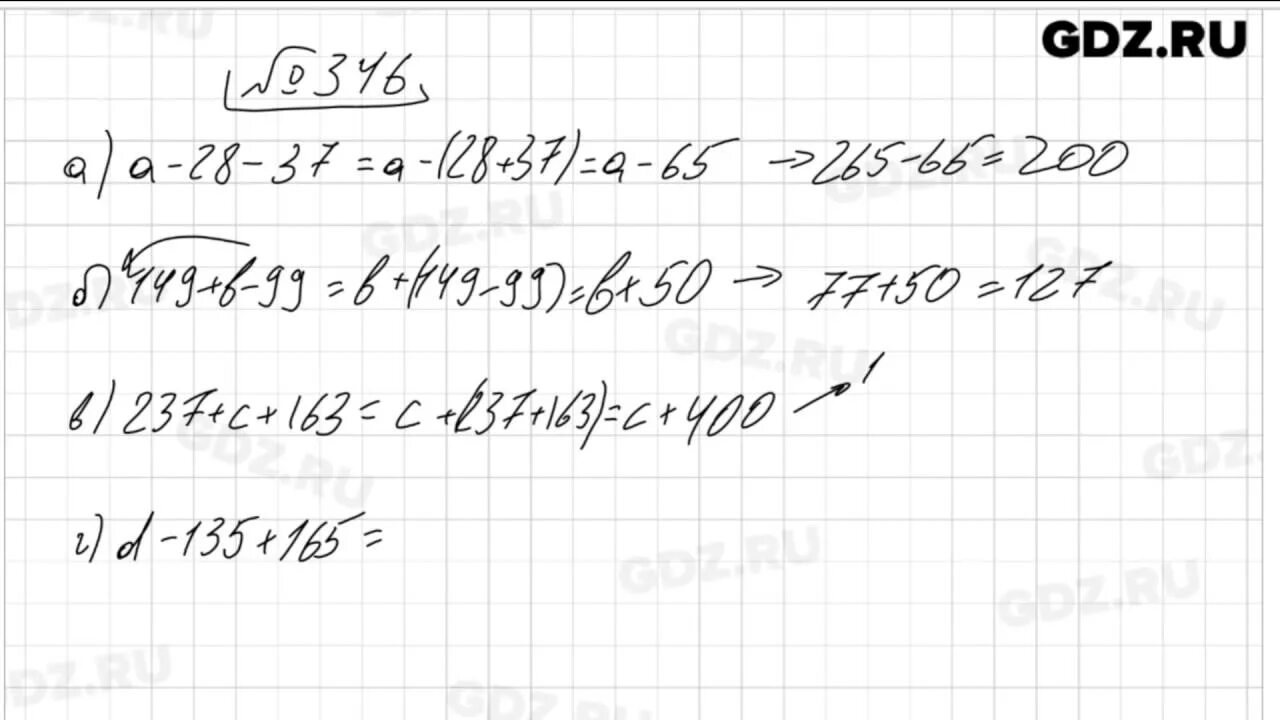 GDZ.RU
№ 346
а) a - 28 - 37 = a - (28 + 37) = a - 65 → 265 - 65 = 200
б) 149 + b - 99 = b + (149 - 99) = b + 50 → 77 + 50 = 127
в) 237 + c + 163 = c + (237 + 163) = c + 400 → 1
г) d - 135 + 165 =